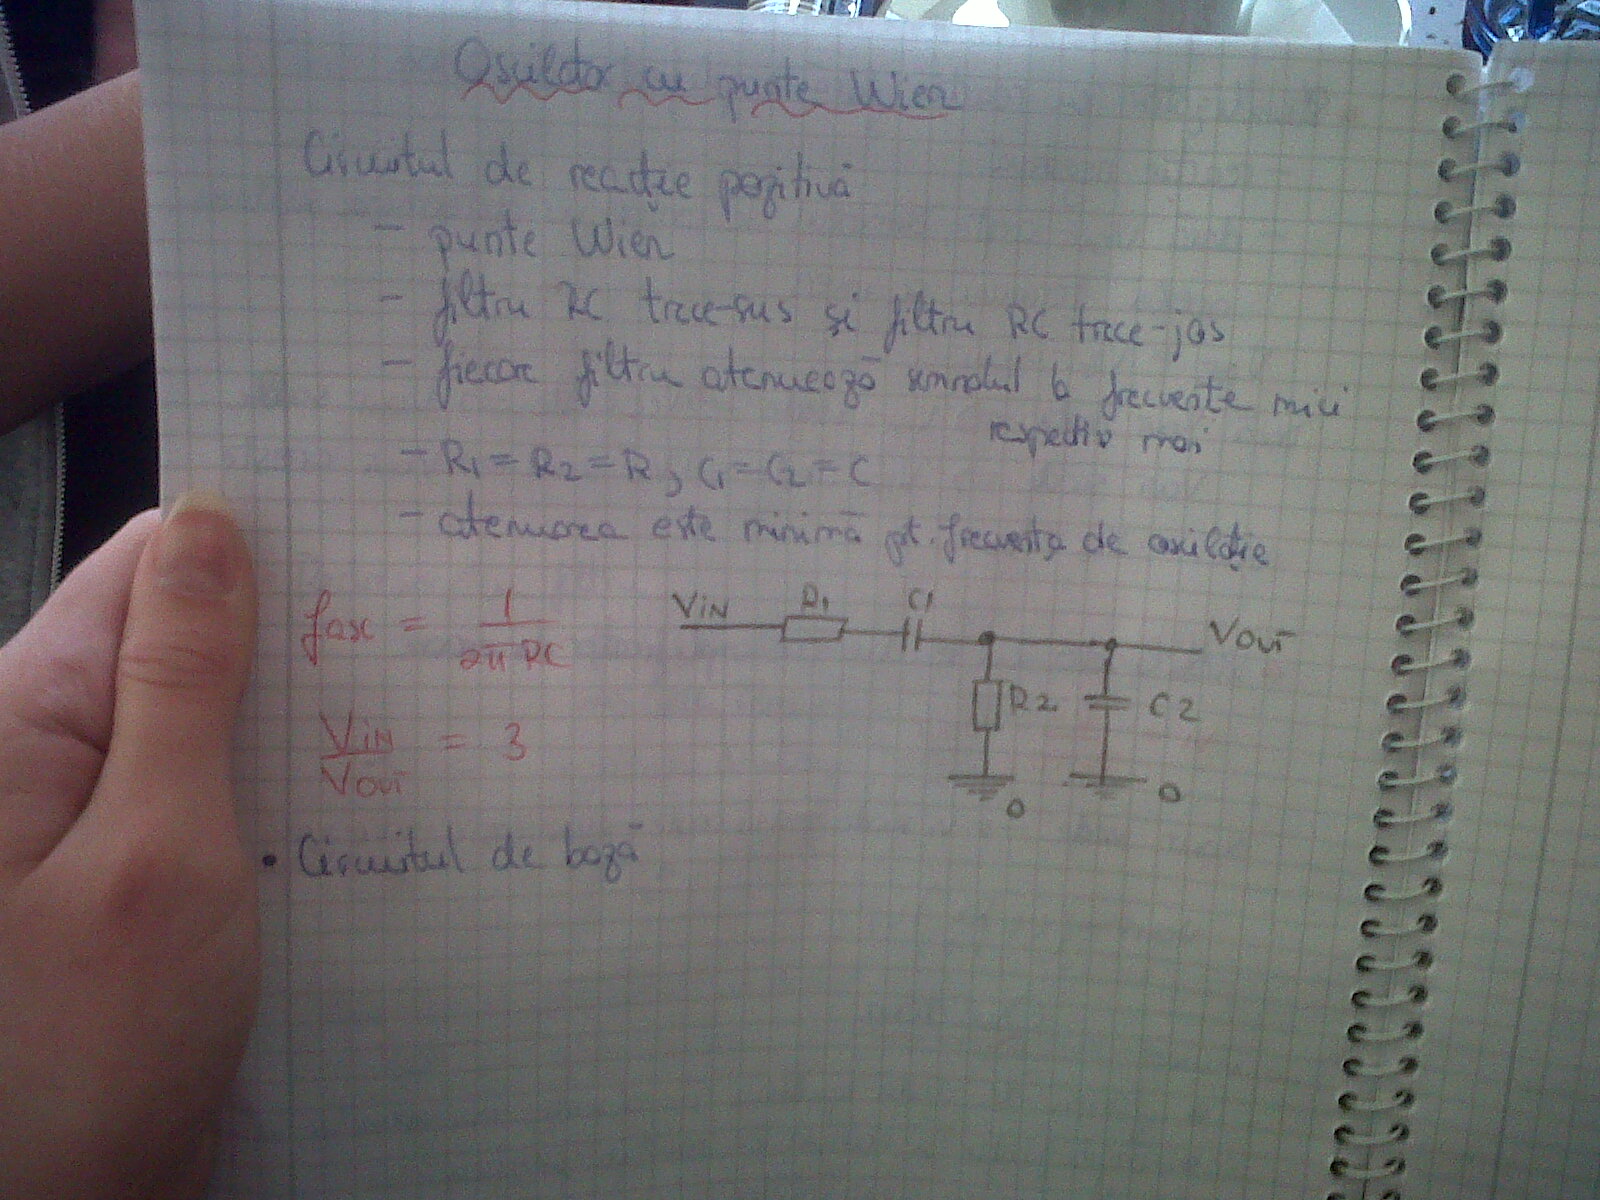 Oscilator cu punte Wien
Circuitul de reacție pozitivă
- punte Wien
- filtru RC trece-sus și filtru RC trece-jos
- fiecare filtru atenuează semnalul la frecvente mici
respectiv mari
- R1 = R2 = R, C1 = C2 = C
- atenuarea este minimă pt. frecvența de oscilație
fosc = 1 / 2πRC
VIN R1 C1 VOUT
R2 C2
VIN / VOUT = 3
0 0
• Circuitul de bază